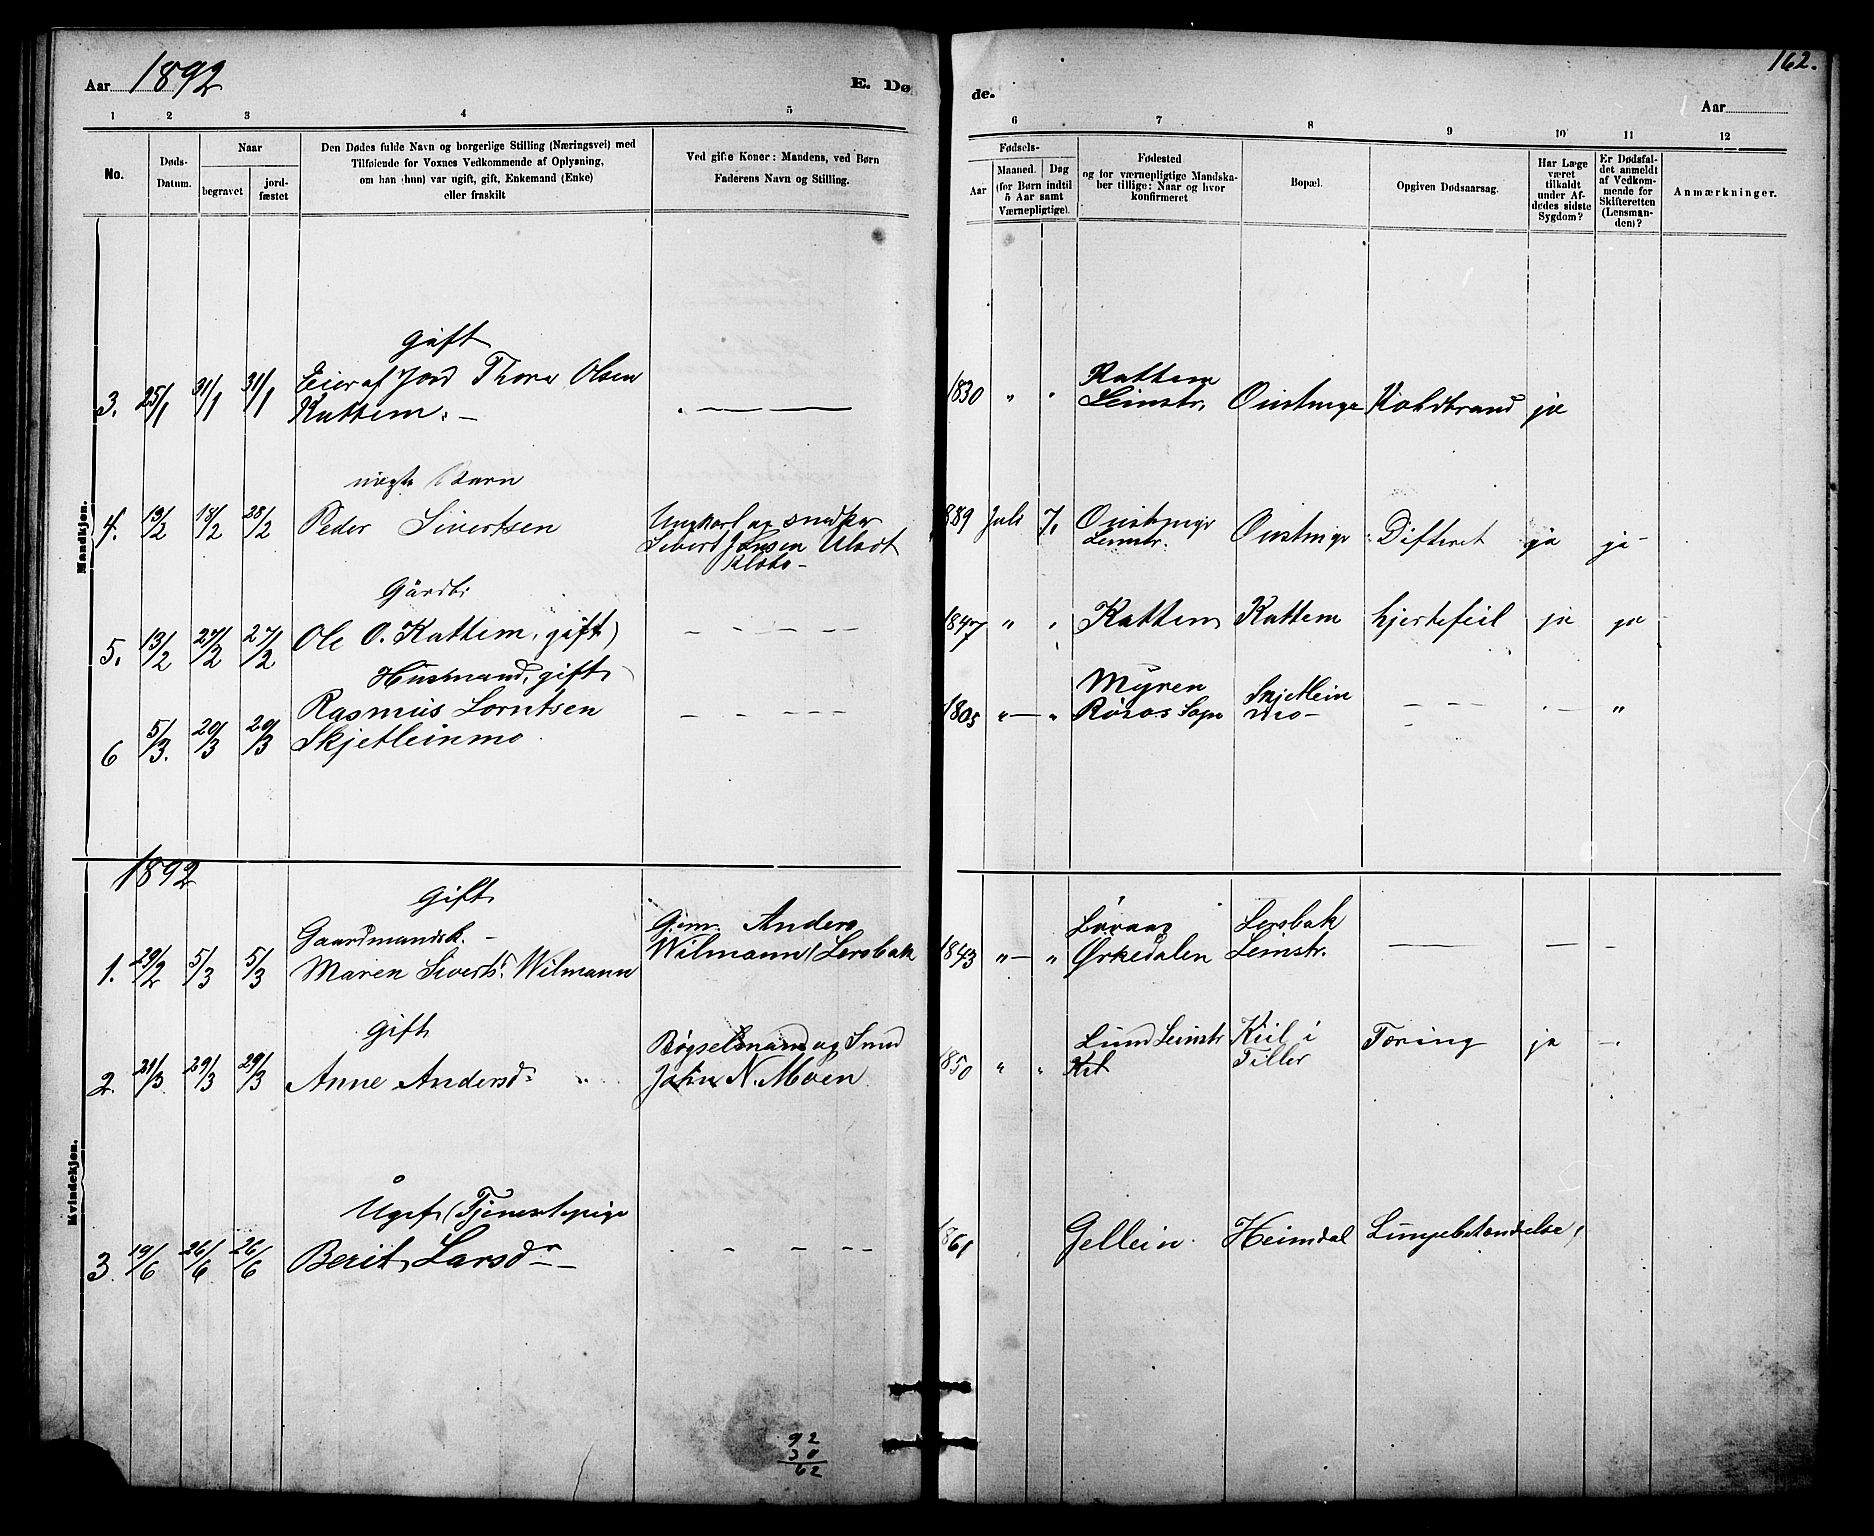 Aar 1892
E. Dø
1 2 3 4 5
No.
Døds-
Datum.
Naar
begravet
jord-
fæstet
Den Dødes fulde Navn og borgerlige Stilling (Næringsvei) med
Tilføiende for Voxnes Vedkommende af Oplysning,
om han (hun) var ugift, gift, Enkemand (Enke)
eller fraskilt
Ved gifte Koner: Mandens, ved Børn
Faderens Navn og Stilling.
Mandkjøn.
gift
Eier af Jord Thore Olsen
3. 25/1 31/1 31/1 Kattem. —
uægte Barn
4. 13/2 18/2 28/2 Peder Sivertsen
Ungkarl og snedker
Sivert Jonsen Ulset
Klæbo —
Gårdb.
5. 13/2 27/2 27/2 Ole O. Kattem, gift
Husmand, gift
Rasmus Lorntsen
6 5/3. 20/3 20/3 Skjetleinmo
1892
Kvindekjøn.
gift
Gaardmandsk. —
1. 29/2 5/3 5/3 Maren Siverts. Wilmann
Gjem. Anders
Wilmann, Lersbak
gift
2. 21/3 29/3 29/3 Anne Andersd. "
Bøgselmand og Smed
John N. Moen
Ugift, Tjenestepige
3. 19/6 26/6 26/6 Berit Larsd —
92
30
62
162.
de.
Aar
6 7 8 9 10 11 12
Fødsels-
Aar
Maaned. Dag
(for Børn indtil
5 Aar samt
Værnepligtige).
Fødested
og for værnepligtige Mandska-
ber tillige: Naar og hvor
konfirmeret
Bopæl.
Opgiven Dødsaarsag.
Har Læge
været
tilkaldt
under Af-
dødes sidste
Sygdom?
Er Dødsfal-
det anmeldt
af Vedkom-
mende for
Skifteretten
(Lensman-
den)?
Anmærkninger.
Kattem
1830 " " Leinstr. Oustinge Koldbrand ja
889 Juli 7. Oustinge
Leinstr. Oustinge Difteret ja ja —
1847 " " Kattem Kattem hjertefeil ja ja
Myren
1805 " — " Røros Sogn
Skjetlein
mo —
— — — . — "
1843 " — " Ørkedalen
Lersbak
Leinstr.
— — —
850 " " Lund Leinstr
Kiil i
Tiller
Tæring ja —
1861 Gellein. Heimdal Lungebetændelse,